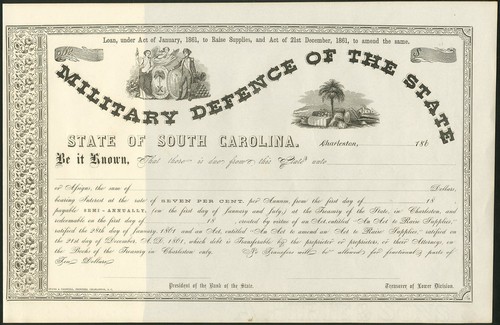 Loan, under Act of January, 1861, to Raise Supplies, and Act of 21st December, 1861, to amend the same.
MILITARY DEFENCE OF THE STATE
STATE OF SOUTH CAROLINA.
Charleston, 186
Be it Known, That there is due from this State unto
or Assigns, the sum of Dollars,
bearing Interest at the rate of SEVEN PER CENT. per Annum, from the first day of 18
payable SEMI-ANNUALLY, (on the first of January and July,) at the Treasury of the State, in Charleston, and
redeemable on the first day of 18 created by virtue of an Act, entitled "An Act to Raise Supplies,"
ratified the 28th day of January, 1861 and an Act, entitled "An Act to amend an Act to Raise Supplies," ratified on
the 21st day of December, A.D. 1861, which debt is Transferable by the proprietor or proprietors, or their Attorneys, on
the Books of the Treasury in Charleston only. No Transfers will be allowed for fractional parts of
Ten Dollars.
President of the Bank of the State.
Treasurer of Lower Division.